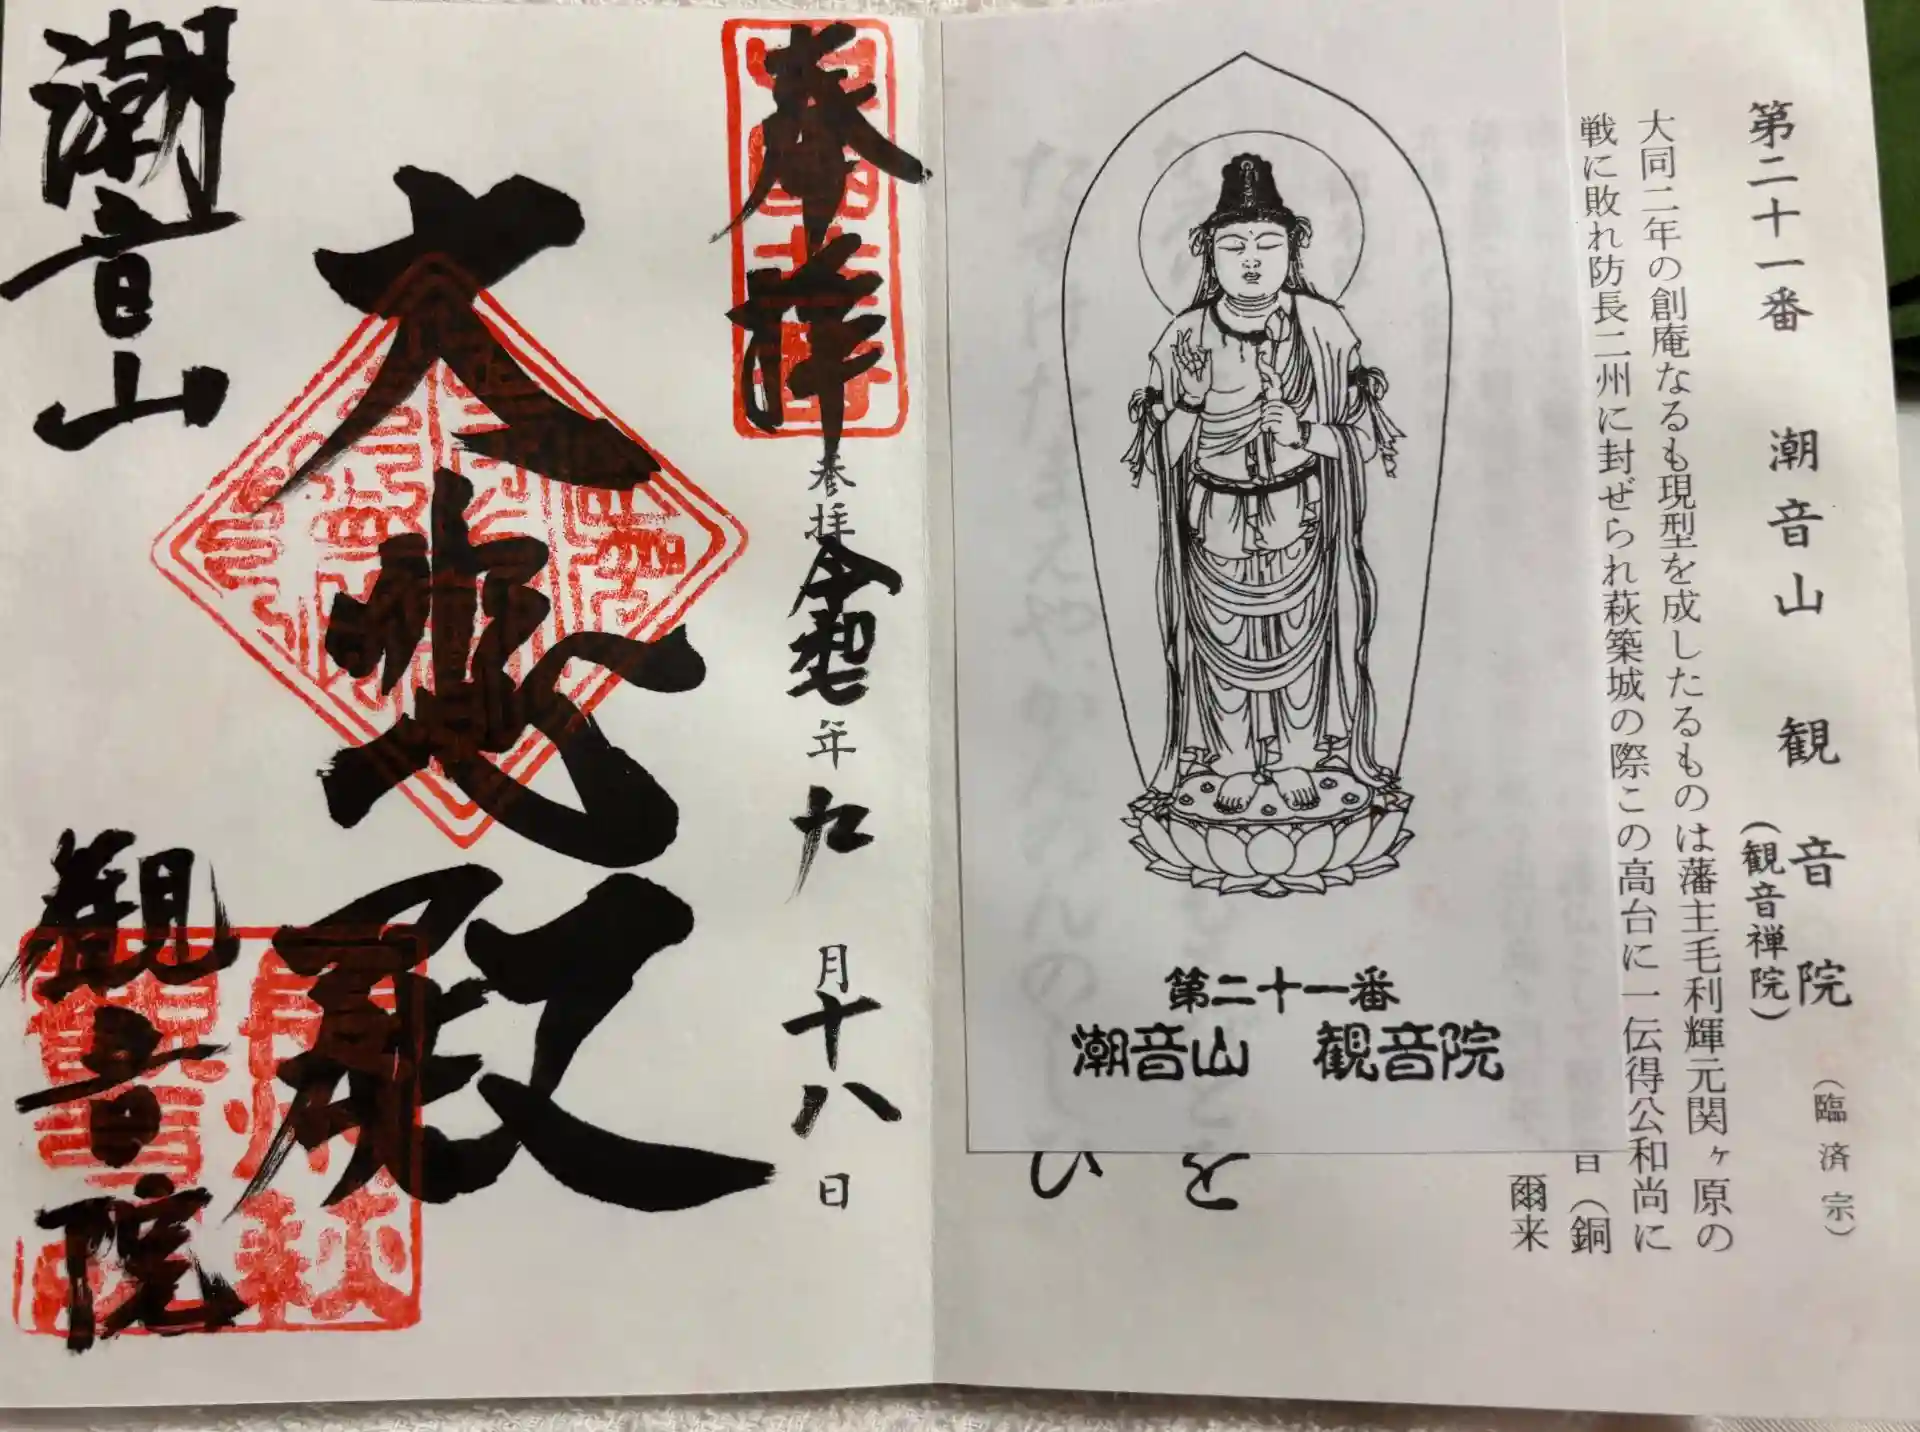 第二十一番 潮音山 観音院 (臨済宗)
(観音禅院)
大同二年の創庵なるも現型を成したるものは藩主毛利輝元関ヶ原の
戦に敗れ防長二州に封ぜられ萩築城の際この高台に一伝得公和尚に
音(銅
爾来
第二十一番
潮音山 観音院
を
ひ
奉拝
奉拝 令和七年九月十八日
大悲殿
潮音山
観音院